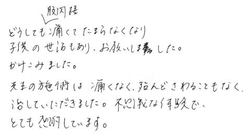 股関節
どうしても痛くてたまらなくなり
子供の世話もあり、お願いしました。
かけこみました。
先生の施術は痛くなく、殆んどさわることもなく、
治していただきました。不思議な体験で、
とても感謝しています。